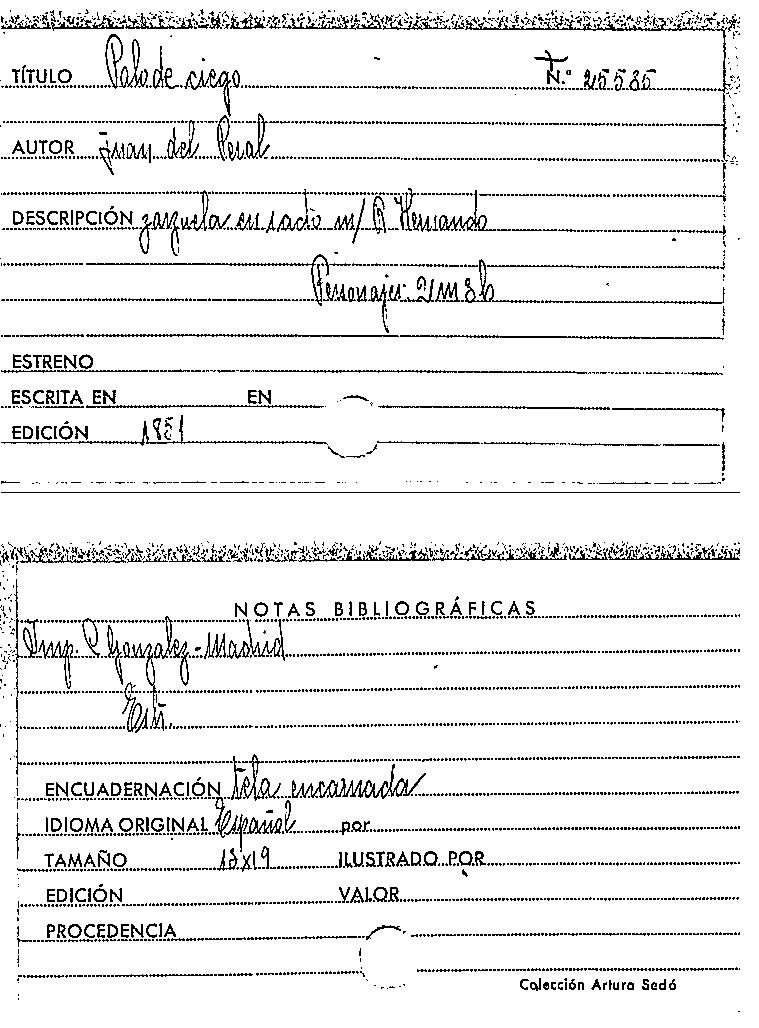 TÍTULO Palo de ciego N.º 25585
AUTOR Juan del Peral
DESCRIPCIÓN zarzuela en 1 acto m/ R Hernando
Personajes: 2/m 3h
ESTRENO
ESCRITA EN EN
EDICIÓN 1851
NOTAS BIBLIOGRÁFICAS
Imp. Gonzalez - Madrid
ENCUADERNACIÓN tela encarnada
IDIOMA ORIGINAL Español por
TAMAÑO 13x19 ILUSTRADO POR
EDICIÓN VALOR
PROCEDENCIA
Colección Arturo Sedó